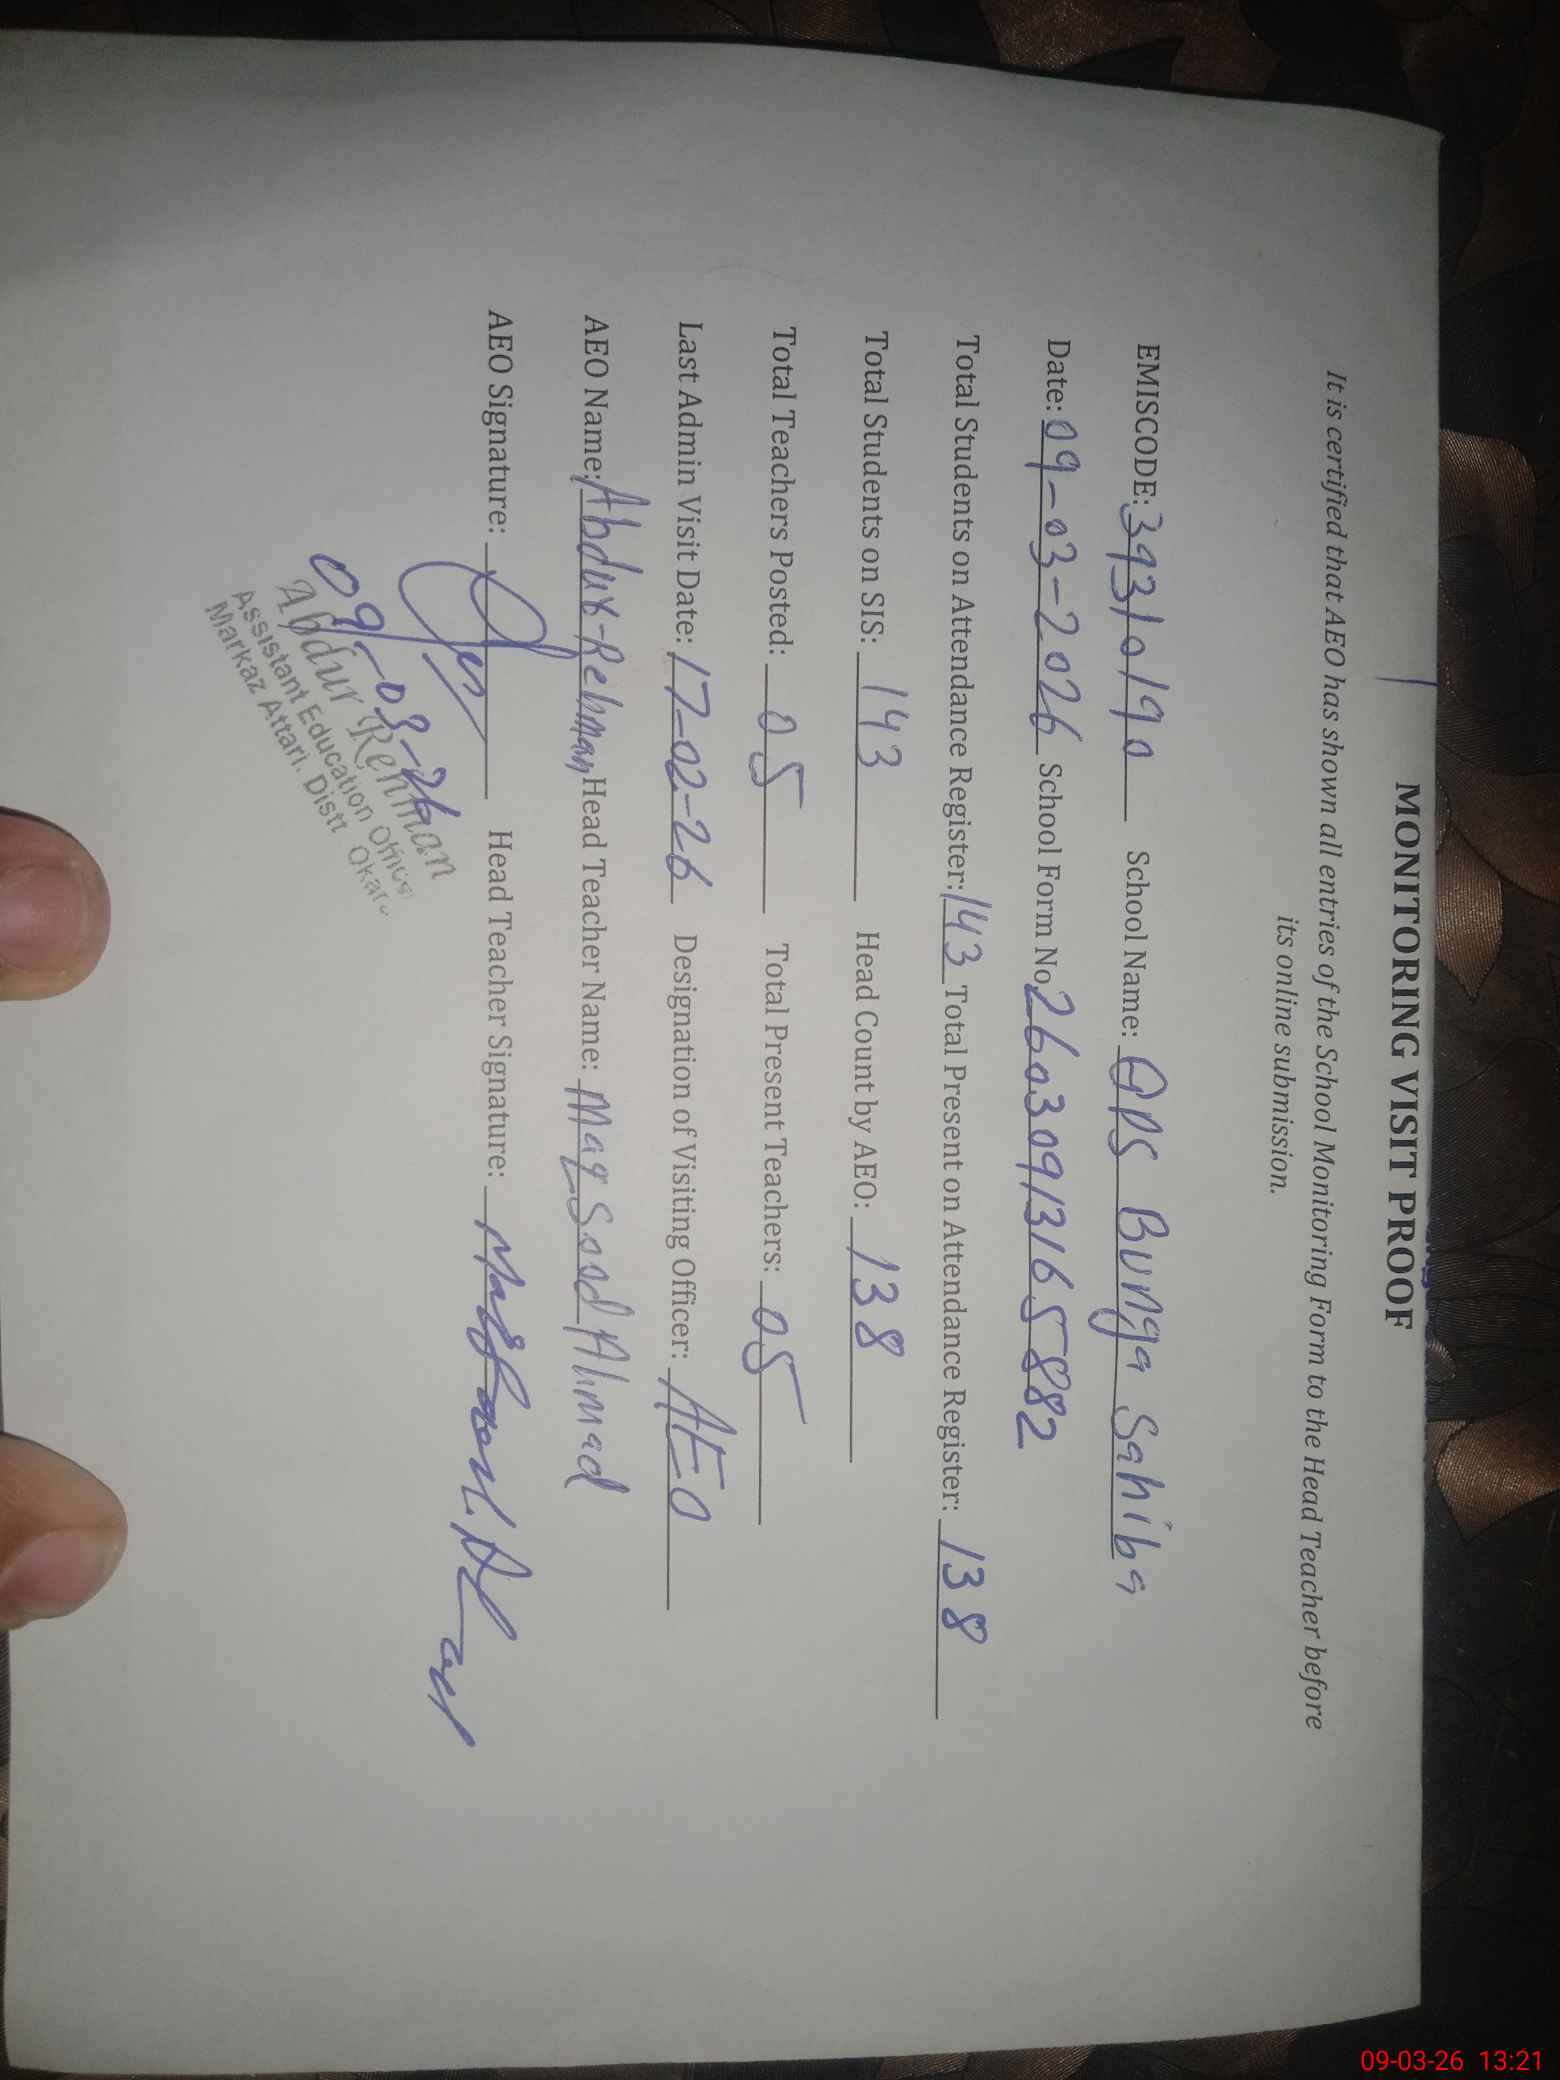 MONITORING VISIT PROOF
It is certified that AEO has shown all entries of the School Monitoring Form to the Head Teacher before
its online submission.
EMISCODE: 39310190 School Name: GPS Bunga Sahiba
Date: 09-03-2026 School Form No 26030913165882
Total Students on Attendance Register: 143 Total Present on Attendance Register: 138
Total Students on SIS: 143 Head Count by AEO: 138
Total Teachers Posted: 05 Total Present Teachers: 05
Last Admin Visit Date: 17-02-26 Designation of Visiting Officer: AEO
AEO Name: Abdur-Rehman Head Teacher Name: Maqsood Ahmad
AEO Signature: Head Teacher Signature:
09-03-26
Abdur Rehman
Assistant Education Officer
Markaz Attari. Distt
09-03-26 13:21